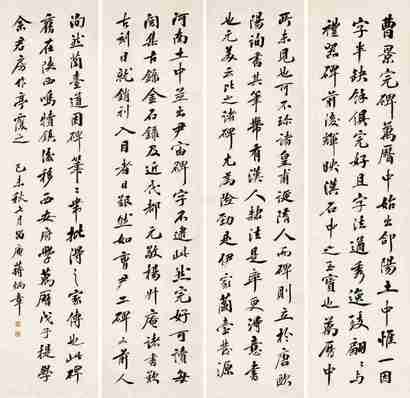 曹景完碑萬曆中始出郃陽土中惟一因
字半缺餘俱完好且字法遒秀逸致翩翩與
禮器碑前後輝映漢石中之至寶也萬曆中
所未見也可不珍諸皇甫誕隋人而碑則立於唐歐
陽詢書其筆帶有漢人隸法是率更得意書
也元美云比之諸碑尤為險勁是伊家蘭臺發源
河南土中並出尹宙碑字不逮此然完好可讀每
閱集古錄金石錄及近代都元敬楊升庵諸書歎
古刻日就銷剝入目者日艱然如曹尹二碑又前人
詢並蘭臺道因碑筆筆帶批得之家傳也此碑
舊在陝西鳴犢鎮後移西安府學萬曆戊子提學
余君房作亭覆之
己未秋七月 蔣炳章